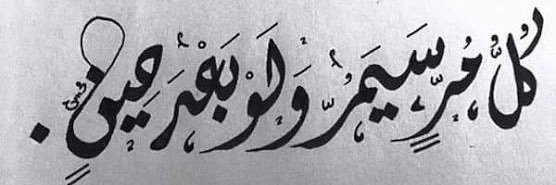 كُلُّ مُرٍّ سَيَمُرُّ وَلَوْ بَعْدَ حِينٍ .